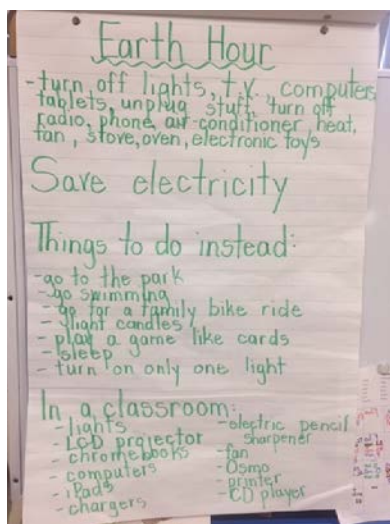 Earth Hour
- turn off lights, t.v., computers
tablets, unplug stuff, turn off
radio, phone, air conditioner, heat,
fan, stove, oven, electronic toys
Save electricity
Things to do instead:
- go to the park
- go swimming
- go for a family bike ride
- light candles
- play a game like cards
- sleep
- turn on only one light
In a classroom:
- lights
- LCD projector
- chromebooks
- computers
- iPads
- chargers
- electric pencil
sharpener
- fan
- Osmo
- printer
- CD player